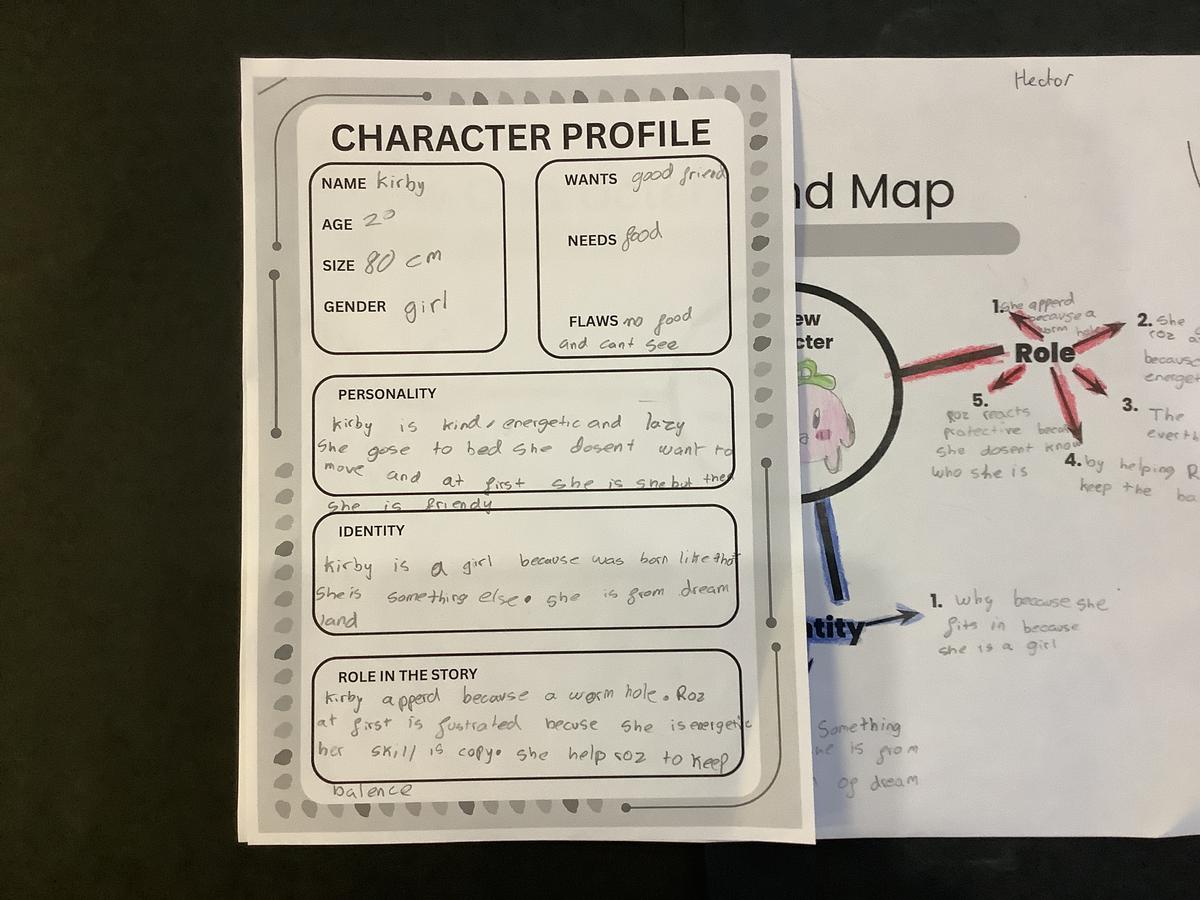 CHARACTER PROFILE
NAME kirby
AGE 20
SIZE 80 cm
GENDER girl
WANTS good friend
NEEDS food
FLAWS no food
and cant see
PERSONALITY
kirby is kind, energetic and lazy
She gose to bed she dosent want to
move and at first she is she but then
she is friendy
IDENTITY
kirby is a girl because was born like that
She is something else. she is from dream
land
ROLE IN THE STORY
kirby apperd because a worm hole. Roz
at first is fustrated becuse she is energetic
her skill is copy. she help roz to keep
balence
Hector
nd Map
ew
cter
Role
1. She apperd
because a
worm hole
2. She
roz a
because
energet
3. The
everth
4. by helping R
keep the ba
5.
Roz reacts
protective becau
she dosent know
who she is
ntity
1. Why because she
fits in because
she is a girl
Something
ne is from
of dream